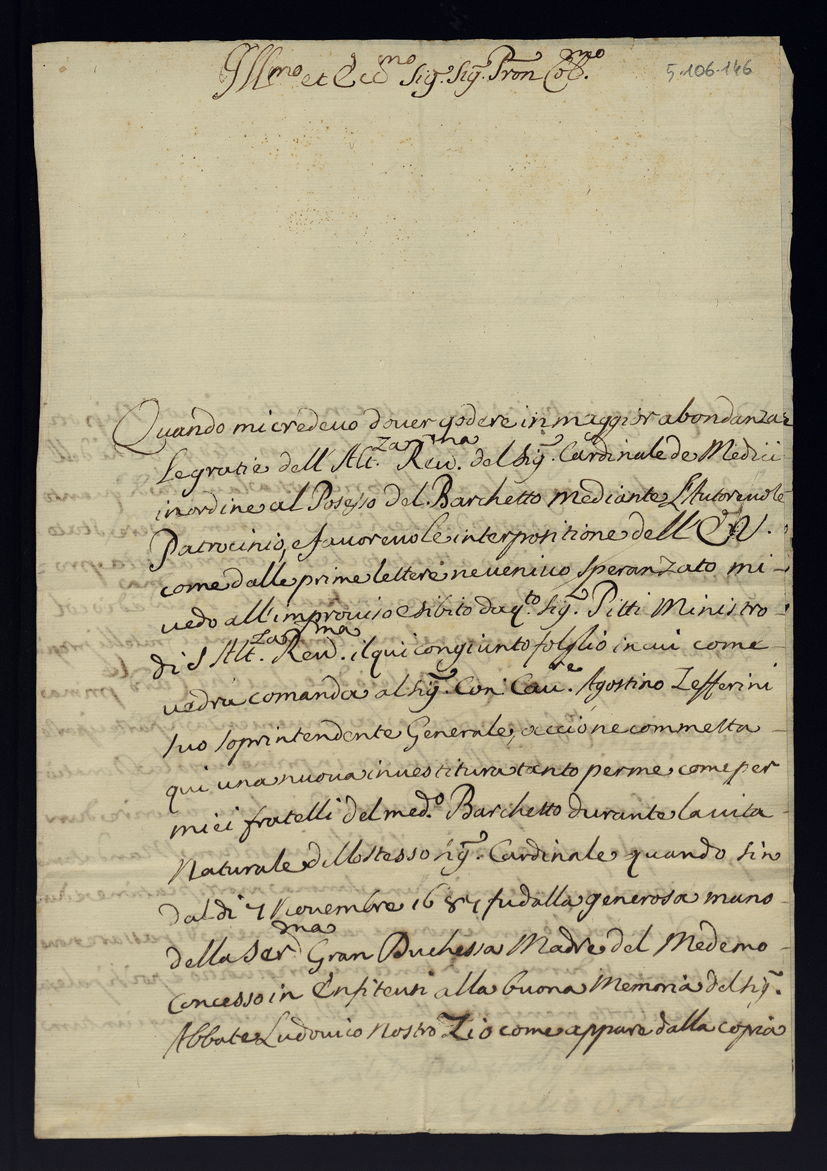 Ill.mo et Ecc.mo Sig. Sig. Pron Col.mo
5-106-146
Quando mi credevo dover godere in maggior abondanza
le gratie dell Alt.za Rev.ma del Sig. Cardinale de Medici
in ordine al Posesso del Barchetto mediante l'Autorevole
Patrocinio, e favorevole interpositione dell' E V.
come dalle prime lettere ne venivo speranzato mi
vedo all'improviso esibito da q.to Sig. Pitti Ministro
di S Alt.za Rev.ma il qui congiunto folglio in cui come
vedrà comanda al Sig. Con: Cav.re Agostino Zefferini
suo soprintendente Generale, acciò ne commetta
qui una nuova investitura tanto per me come per
miei fratelli del med.o Barchetto durante la vita
Naturale dello stesso Sig. Cardinale quando sin
dal di 7 Novembre 1687 fu dalla generosa mano
della Ser.ma Gran Duchessa Madre del Medemo
concesso in Enfiteusi alla buona Memoria del Sig.
Abbate Ludovico Nostro Zio come appare dalla copia